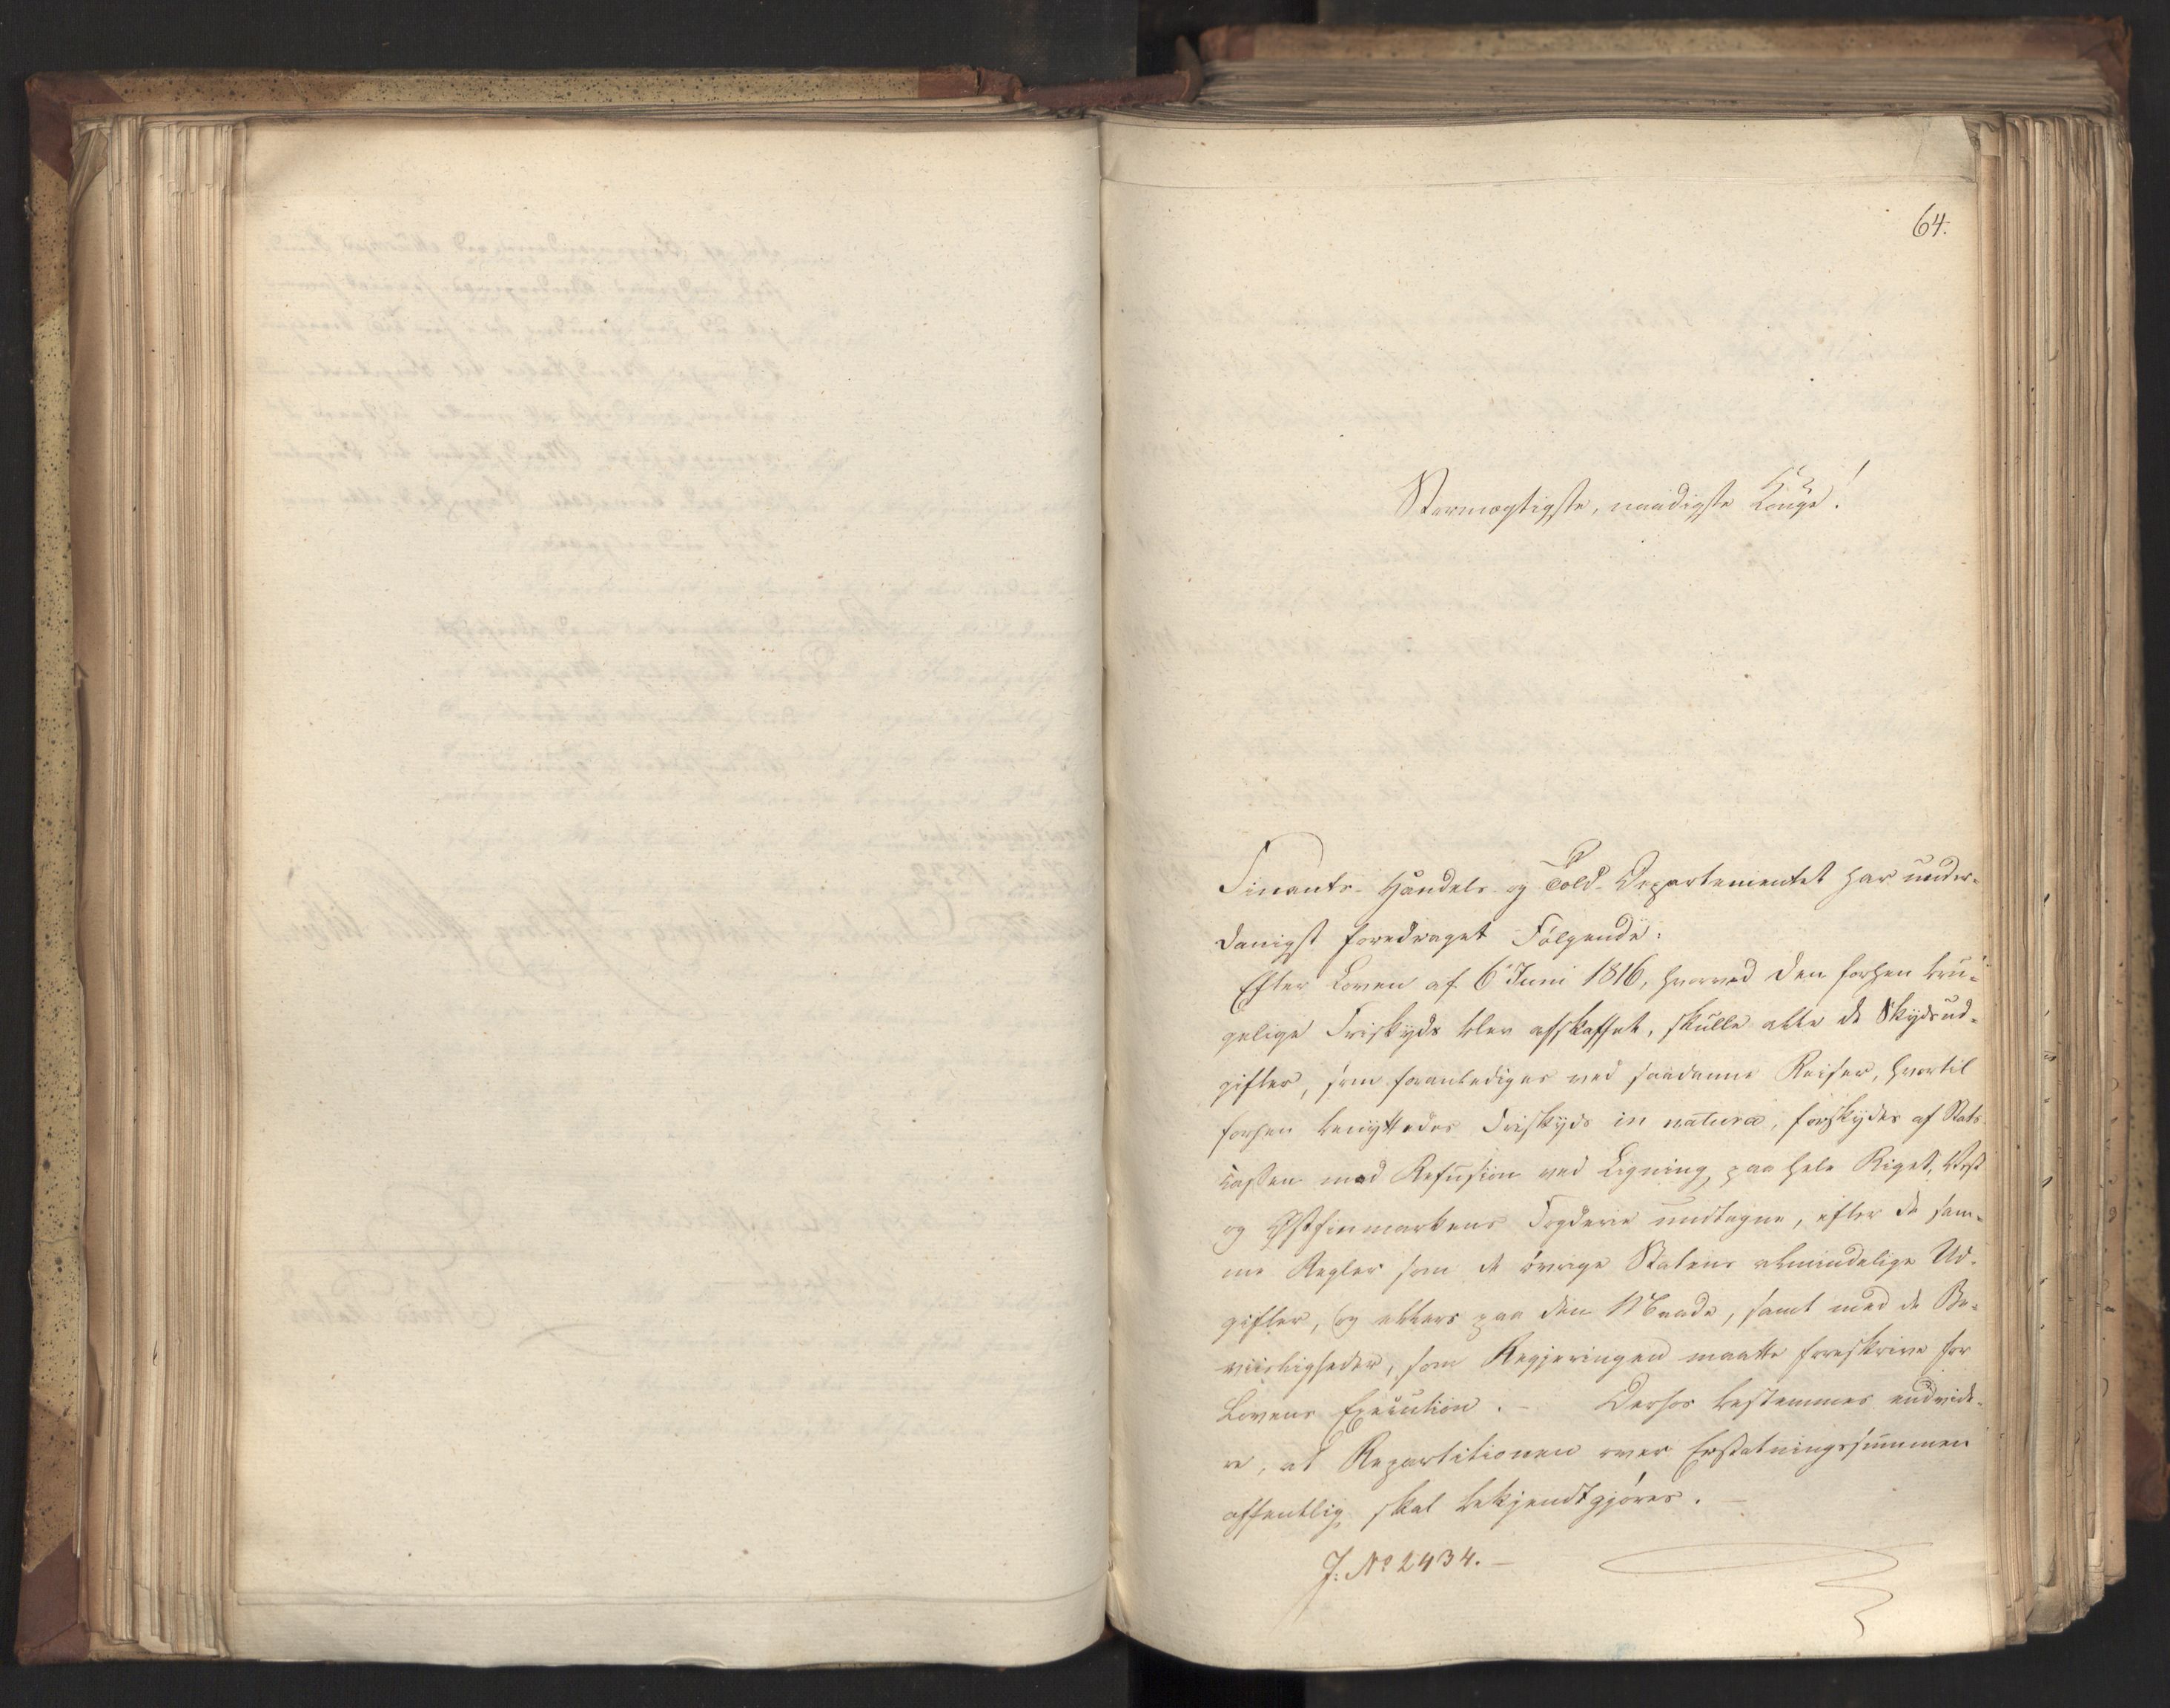 64.
Stormægtigste, naadigste Konge!
Finants- Handels- og Told-Departementet har under-
danigst foredraget Følgende:
Efter Loven af 6 Juni 1816, hvorved den forhen bru-
gelige Friskyds blev afskaffet, skulle alle de Skydsud-
gifter, som foranlediges ved saadanne Reiser, hvortil
forhen benyttedes Friskyds in natura, forskydes af Stats-
cassen mod Refusion ved Ligning paa hele Riget, Vest
og Østfinmarkens Fogderie undtagne, efter de sam-
me Regler som de øvrige Statens almindelige Ud-
gifter, og ellers paa den Maade, samt med de Be-
viisligheder, som Regjeringen maatte foreskrive for
Lovens Execution. - Derhos bestemmes endvide-
re, at Repartitionen over Erstatningssummen
offentlig skal bekjendtgjøres. -
J: No 2434. -